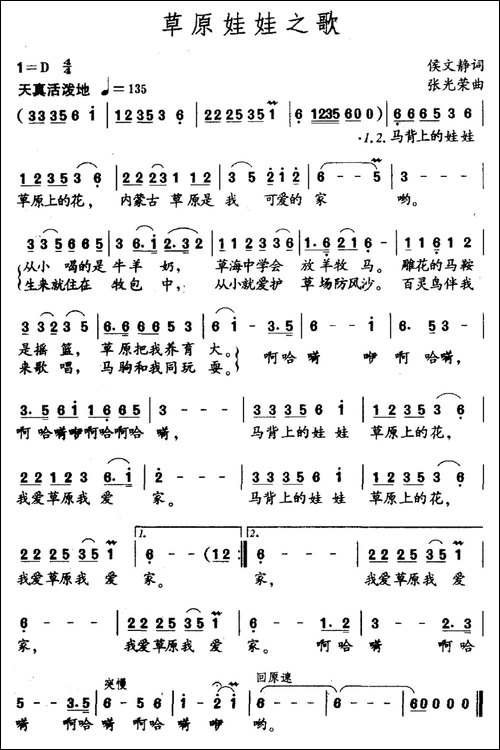 草原娃娃之歌
1=D 4/4
侯文静词
天真活泼地 ♩=135
张光荣曲
(3 3 3 5 6 i | 1 2 3 5 3 6 | 2 2 2 5 3 5 1 | 6 i 1235 6 0 0) | 6 6 6 5 3 6 |
1.2.马背上的娃娃
1 2 3 5 3 6 | 2 2 1 2 3 5 3 | 3 2 i 2 i | 6 - - 5 | 3 - - - |
草原上的花， 内蒙古 草原是 我 可爱的 家 哟。
3 3 5 6 6 5 | 3 6. i 2. 3 2 | 1 1 2 3 3 6 | 1. 6 2 1 6 | 2 2 1 2 3 3 |
从小 喝的是 牛羊 奶， 草海中学会 放羊牧 马。 雕花的马鞍
生来就住在 牧包 中， 从小就爱护 草场防风沙。 百灵鸟伴我
3 3 2 3 5 | 6. 6 6 6 5 3 | 6 i - | 6 - - 3. 5 | 6 i - 3. 5 |
是摇 篮， 草原把我养育 大。 啊哈 嗬 咿 啊 哈嗬，
来歌 唱， 马驹和我同玩 耍。
3. 5 6 i 1 6 6 5 | 3 - - - | 3 3 3 5 6 i | 1 2 3 5 3 6 |
啊 哈嗬咿啊哈啊哈 嗬， 马背上的娃娃 草原上的花，
2 2 1 2 3 6. i | 2 - - - | 3 3 3 5 6 i | 1 2 3 5 3 6 |
我爱草原我 爱 家。 马背上的娃娃 草原上的花，
1.
2.
2 2 2 5 3 5 1 | 6 - - (1 2 :‖ 6 - - - | 2 2 2 5 3 5 1 |
我爱草原我 爱 家。 家， 我爱草原我 爱
6 - - - | 2 2 2 5 3 5 1 | 6 - - 1. 2 | 3 - - 2. 3 |
家， 我爱草原我爱 家。 啊哈 嗬 啊哈
突慢
回原速
5 - - 3. 5 | 6 - 5 6 | i - 2 i | 6 - - - | 6 0 0 0 0 ‖
嗬 啊哈 嗬 啊哈 嗬 咿 哟。